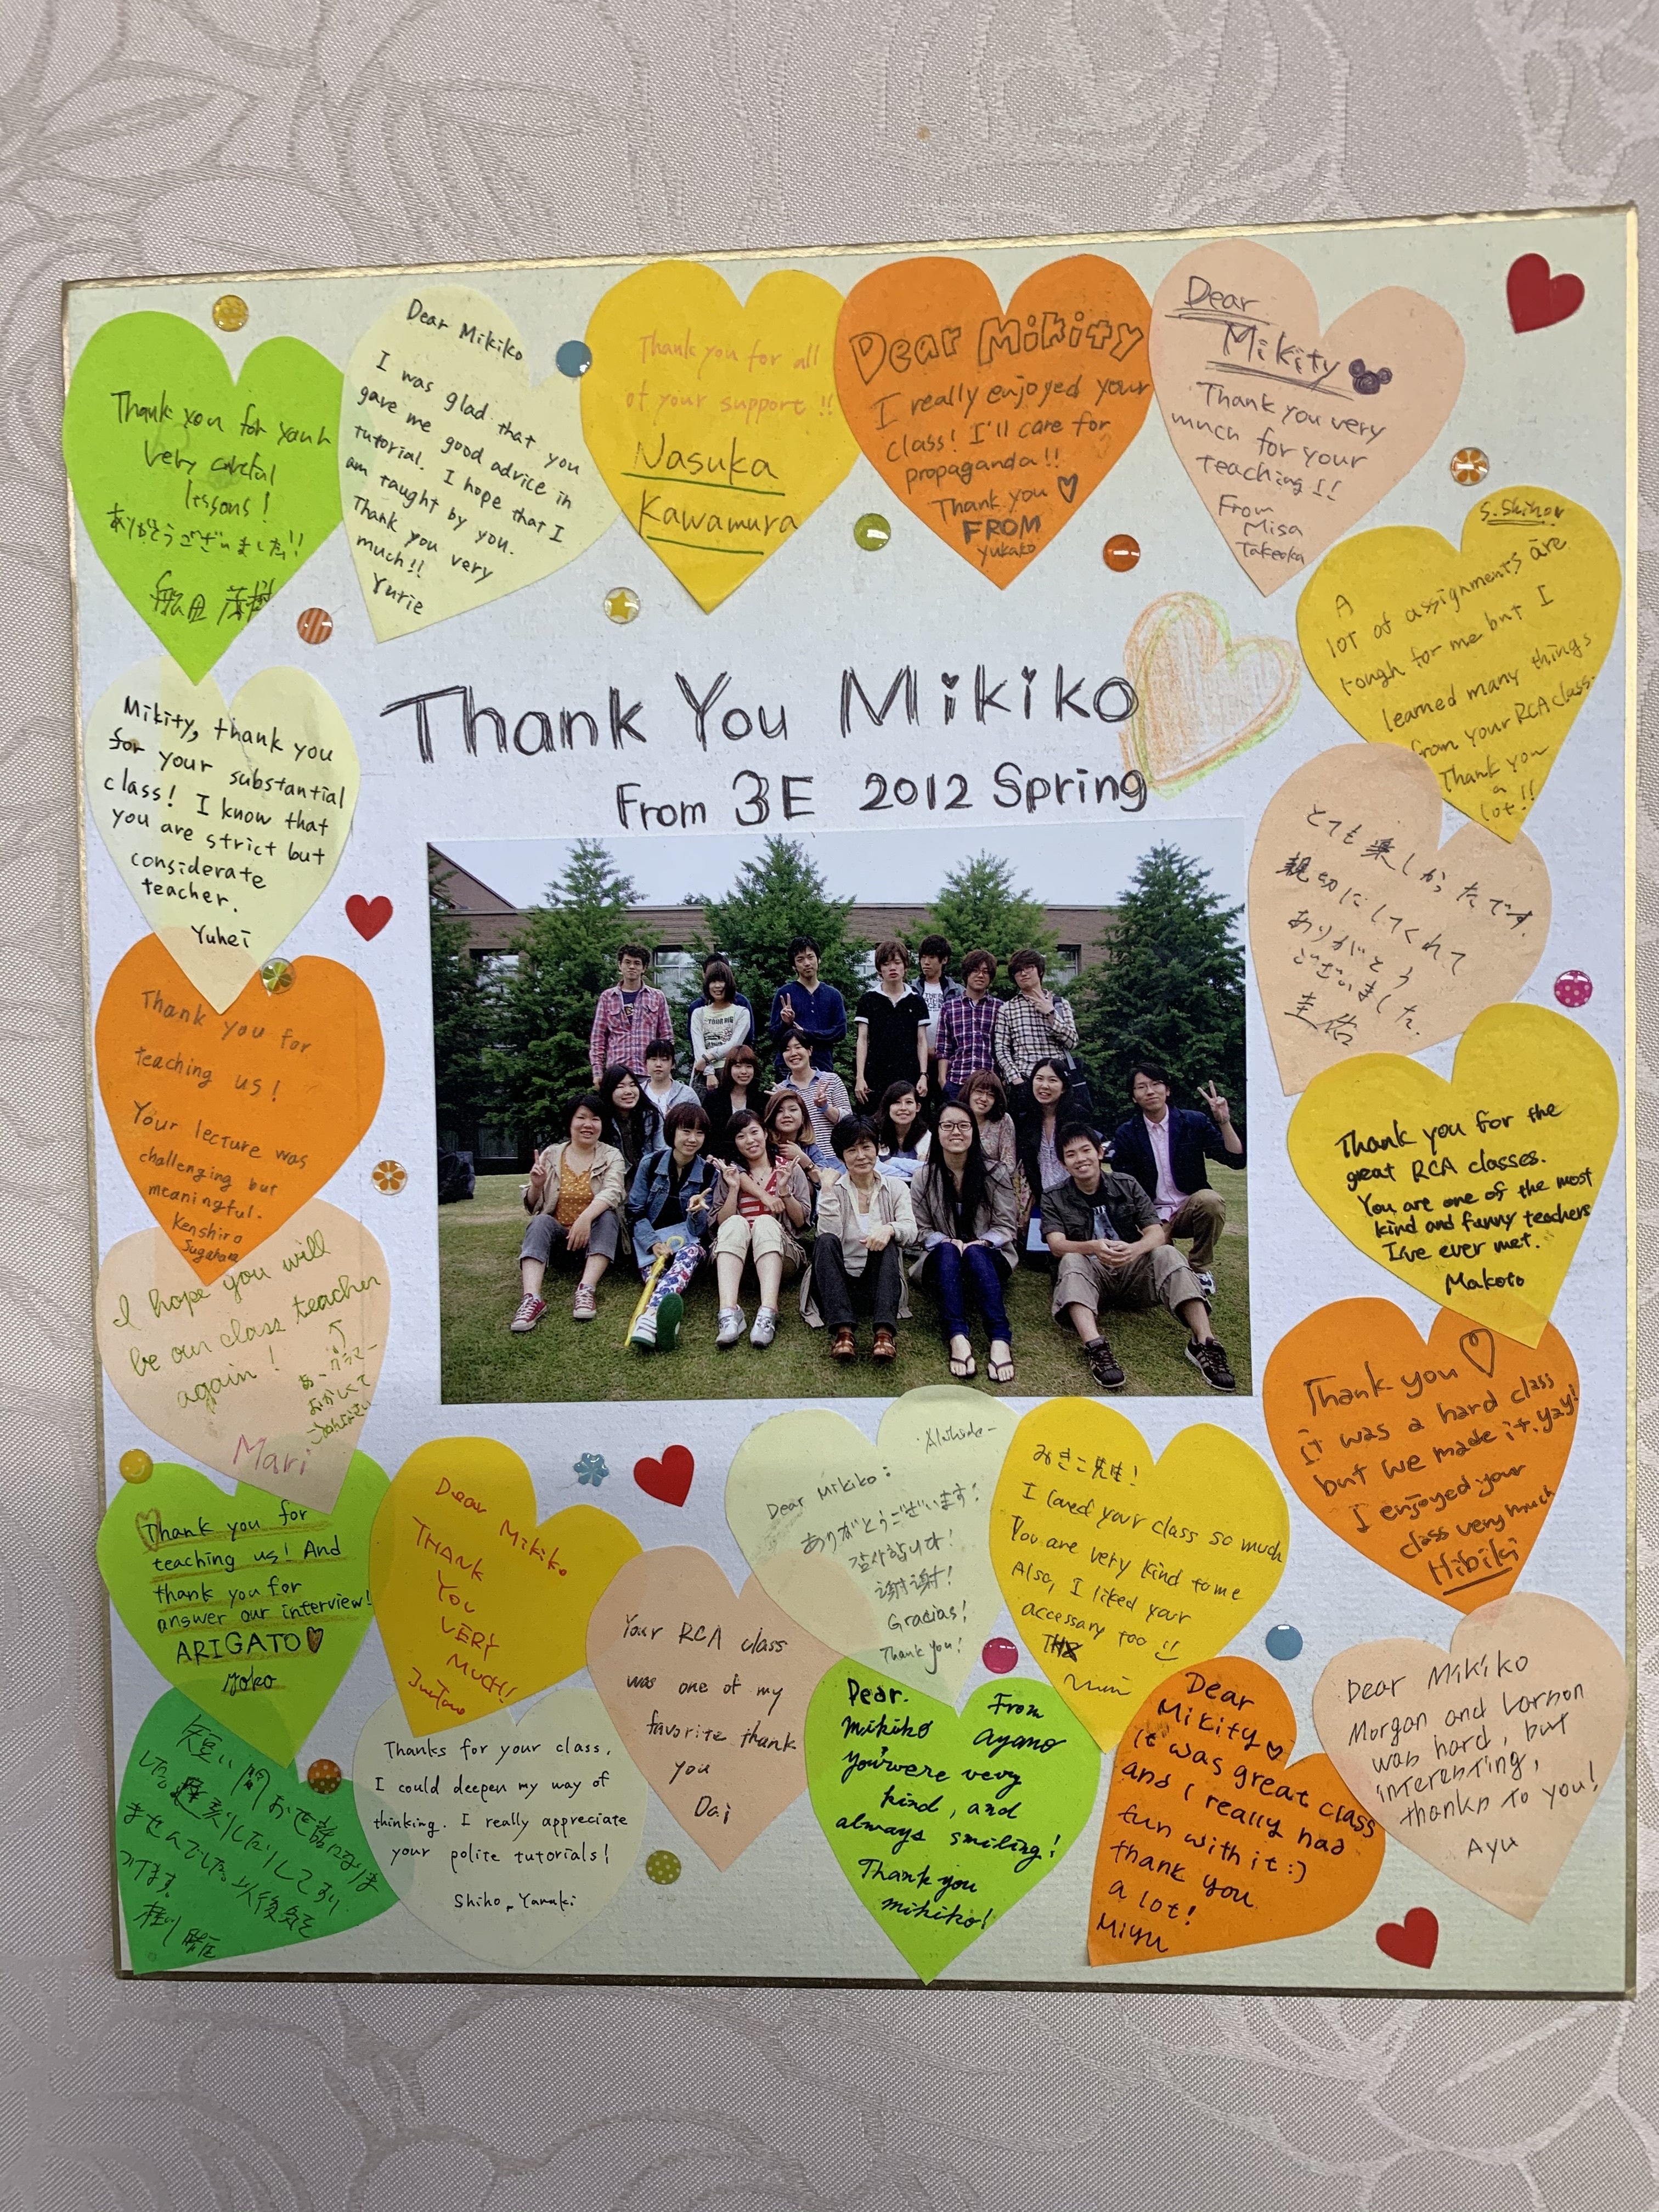 Thank You Mikiko
From 3E 2012 Spring
Thank you for your
very careful
lessons!
ありがとうございました!!
船田 茂樹
Dear Mikiko
I was glad that you
gave me good advice in
tutorial. I hope that I
am taught by you.
Thank you very
much!!
Yurie
Thank you for all
of your support!!
Nasuka
Kawamura
Dear Mikity
I really enjoyed your
class! I'll care for
propaganda!!
Thank you ♡
FROM
Yukako
Dear
Mikity
Thank you very
much for your
teaching!!
From
Misa
Takeoka
S.Shihor
A
lot of assignments are
tough for me but I
learned many things
from your RCA class.
Thank you
a
lot!!
とても楽しかったです。
親切にしてくれて
ありがとう
ございました。
圭佑
Thank you for the
great RCA classes.
You are one of the most
kind and funny teachers
I've ever met.
Makoto
Thank you ♡
it was a hard class
but we made it. yay!
I enjoyed your
class very much
Hibiki
Dear Mikiko
Morgan and Larson
was hard, but
interesting,
thanks to you!
Ayu
Mikity, thank you
for your substantial
class! I know that
you are strict but
considerate
teacher.
Yuhei
Thank you for
teaching us!
Your lecture was
challenging but
meaningful.
Kenshiro
Sugahara
I hope you will
be our class teacher
again!
Mari
Thank you for
teaching us! And
thank you for
answer our interview!
ARIGATO♡
Yoko
Dear Mikiko
THANK
YOU
VERY
MUCH!
短い間お世話になりま
した。遅刻したりしてすい
ませんでした。以後気を
付けます。
Thanks for your class.
I could deepen my way of
thinking. I really appreciate
your polite tutorials!
Shiho.
Your RCA class
was one of my
favorite thank
you
Dai
Dear Mikiko:
ありがとうございます!
감사합니다!
谢谢!
Gracias!
Thank you!
みきこ先生!
I loved your class so much
You are very kind to me
Also, I liked your
accessary too !!
Dear.
Mikiko
From
Ayano
You were very
kind, and
always smiling!
Thank you
mikiko!
Dear
Mikity ♡
it was great class
and I really had
fun with it :)
thank you
a lot!
Miyu